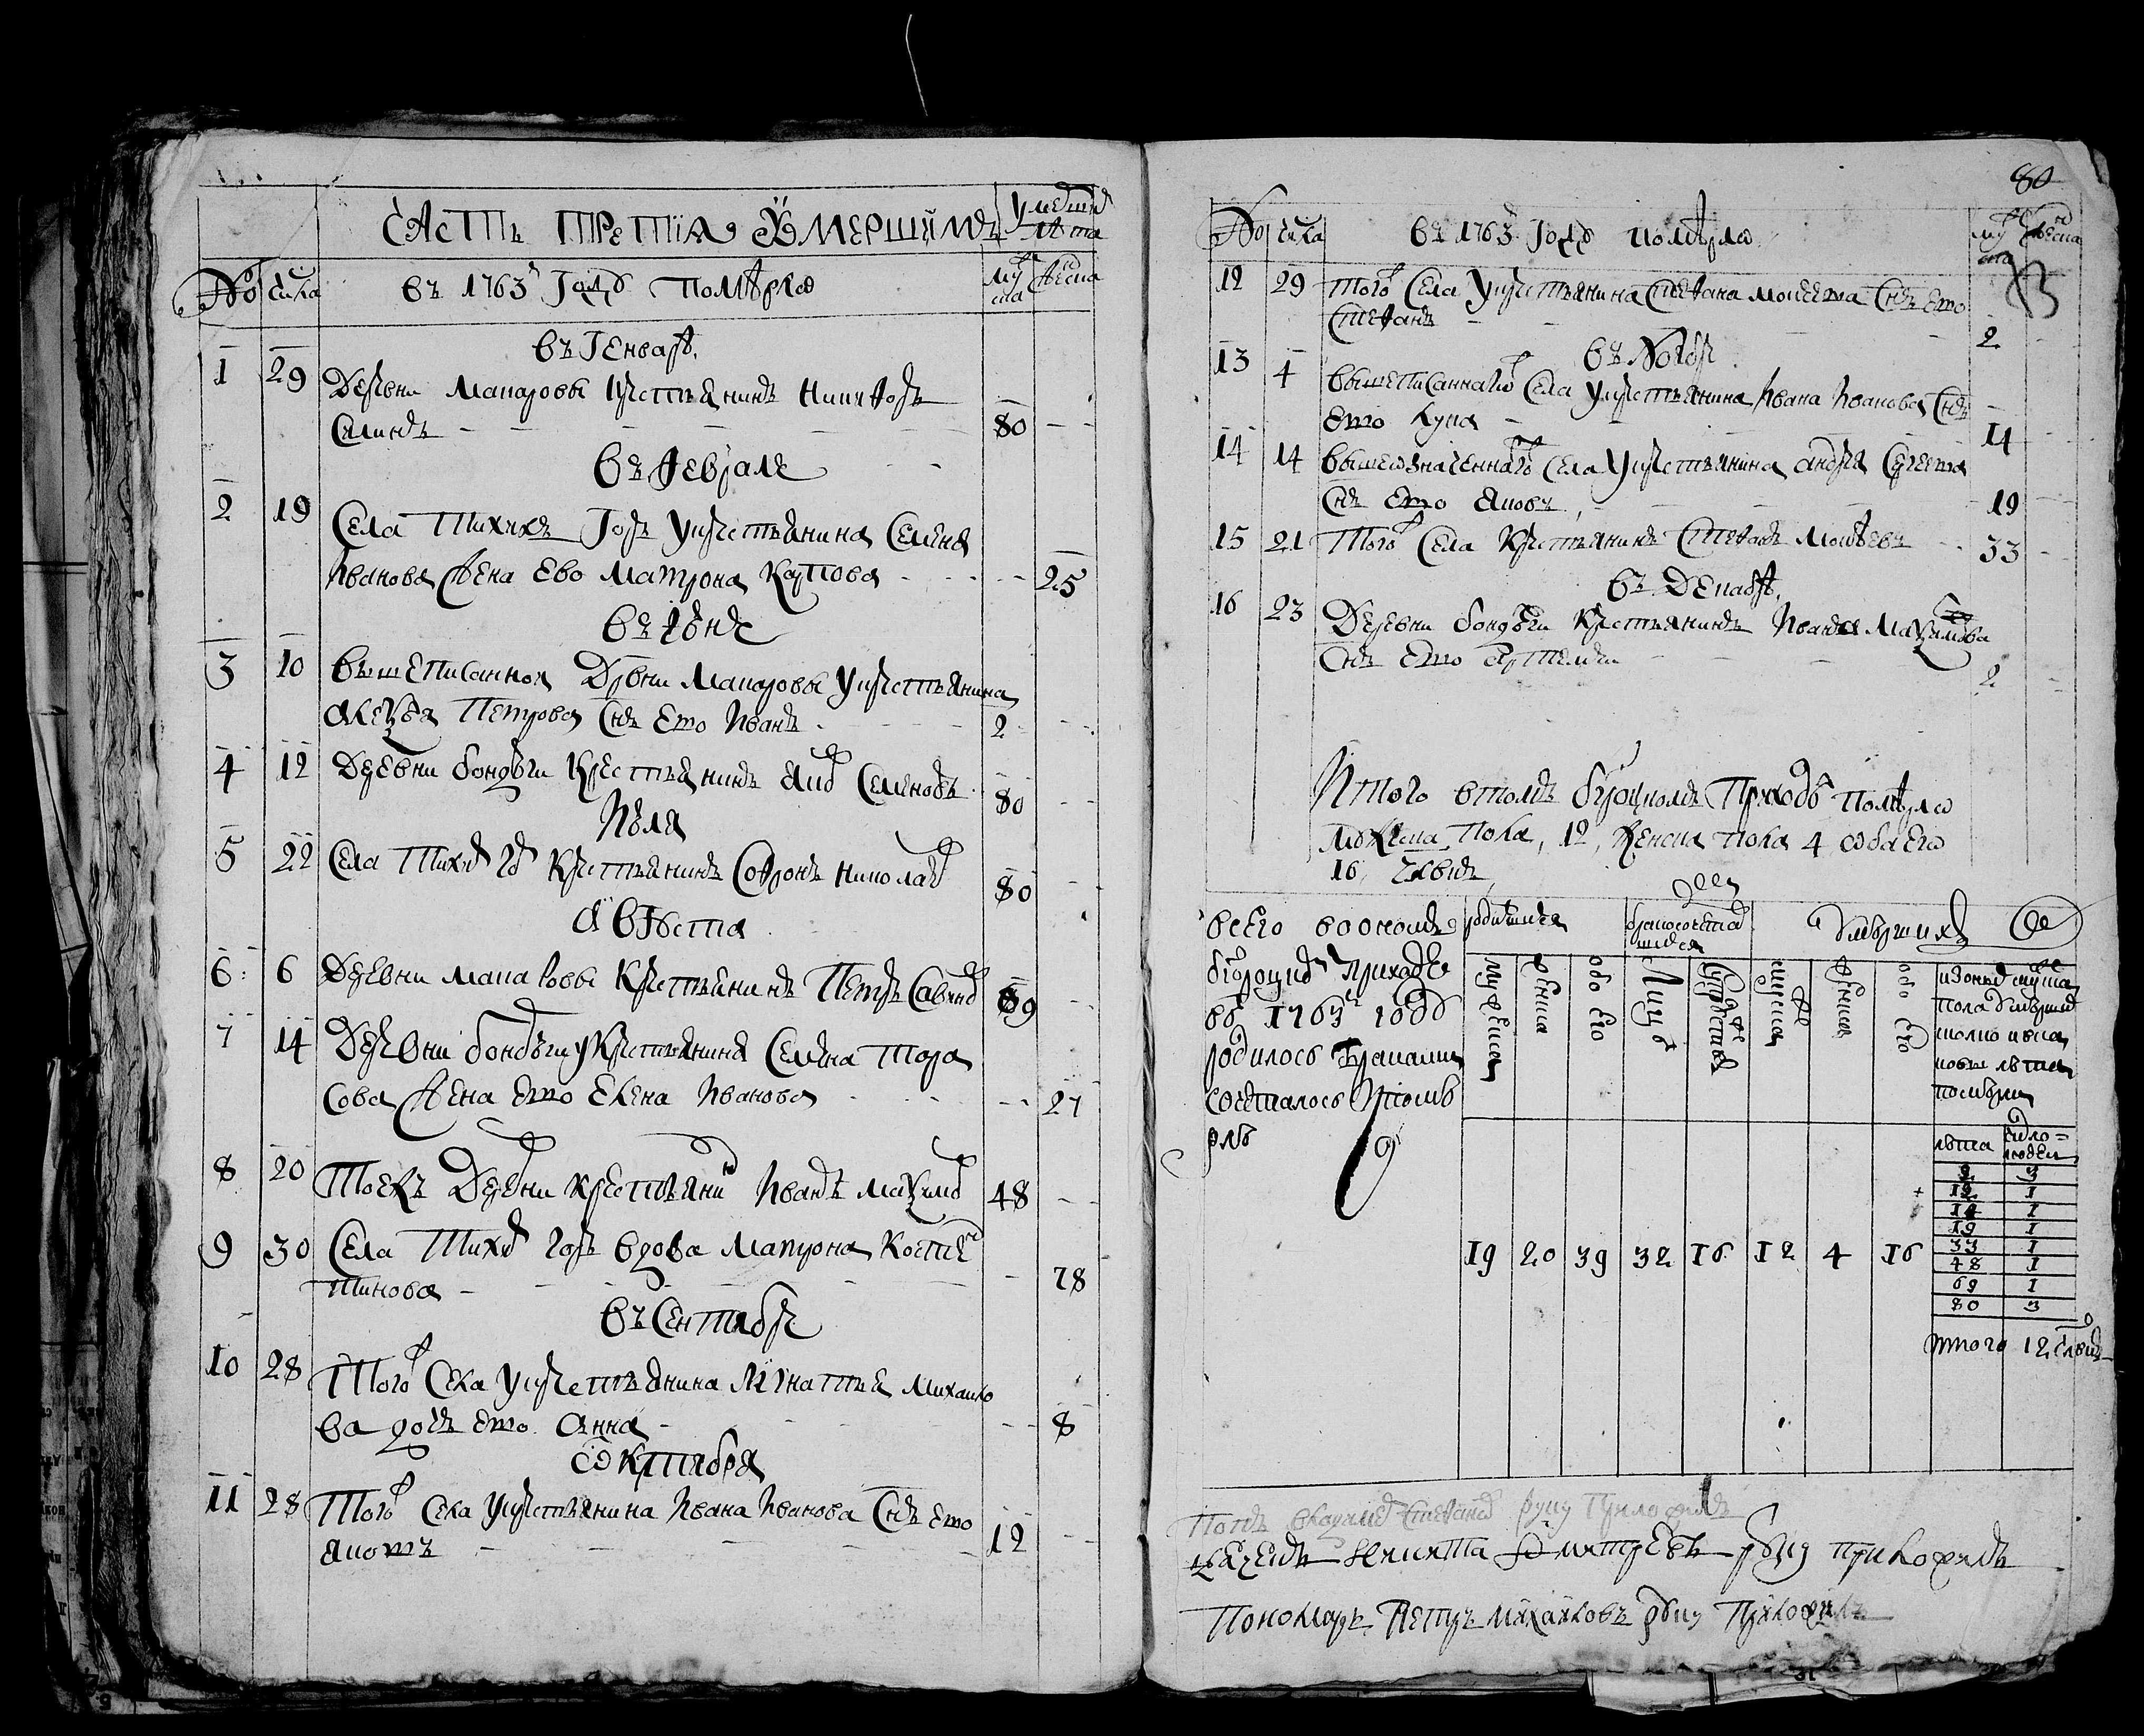 Часть третiя Умершимъ
Умершихъ лѣта
№ числа въ 1763м году Померло муска женска
въ Генварѣ
1 29 Деревни Макаровы крестьянинъ Никифоръ
Савинъ 80
въ Февралѣ
2 19 Села Тихихъ Горъ у крестьянина Семена
Иванова жена ево Матрона Карпова 25
въ Iюнѣ
3 10 вышеписанной Дрвни Макаровы у крестьянина
Алеѯѣя Петрова снъ ево Иванъ 2
4 12 Деревни Бондюги крестьянинъ Семеновъ 80
Июля
5 22 Села Тихихъ Гор крестьянинъ Софронъ Николаев 80
Августа
6 6 Деревни Макаровы крестьянинъ Петръ Савинъ 69
7 14 Деревни Бондюги у крестьянина Семена Тора
сова жена ево Елена Иванова 27
8 20 Тоежъ Деревни крестьянинъ Иванъ Маѯимов 48
9 30 Села Тихих Горъ вдова Матрона Костен
тинова 78
въ Сентябрѣ
10 28 Тогож Села у крестьянина Игнатья Михаило
ва дочь ево Анна 8
Октября
11 28 Тогож Села у крестьянина Ивана Иванова снъ ево
Яковъ 12
80
№ числа въ 1763 Году померло муска женска
12 29 Тогож Села у крестьянина Стефана Моисеева снъ ево
Стефанъ 2
въ Ноябрѣ
13 4 вышеписаннагож Села у крестьянина Ивана Иванова снъ
ево Лука 14
14 14 вышеозначеннагож Села у крестьянина Андрея Сергеева
снъ ево Яковъ 19
15 21 Тогож Села крестьянинъ Стефанъ Моисѣевъ 33
въ Декабрѣ
16 23 Деревни Бондюги крестьянинъ Ивана Маѯимова
снъ ево Артемей 2
Итого втомъ Бгородцкомъ Приходѣ померло
мужеска пола 12 женска пола 4 обоего
16 члвкъ
всего воономъ
Бгородицкомъ приходѣ
въ 1763м году
родилось браками
сочеталось и померло
родившихся бракосочетавшихся умерших
мужеска женска обоего Лицъ Супружествъ мужеска женска обоего
изоныхъ муска
пола умершихъ
толко и в ка
ковы лѣта
померли
лѣта число людей
19 20 39 32 16 12 4 16
2 3
12 1
14 1
19 1
33 1
48 1
69 1
80 3
итого 12 члвкъ
Попъ Стефанъ руку приложилъ
Никита Дмитреевъ руку приложилъ
Пономарь Петръ Михаиловъ руку приложилъ